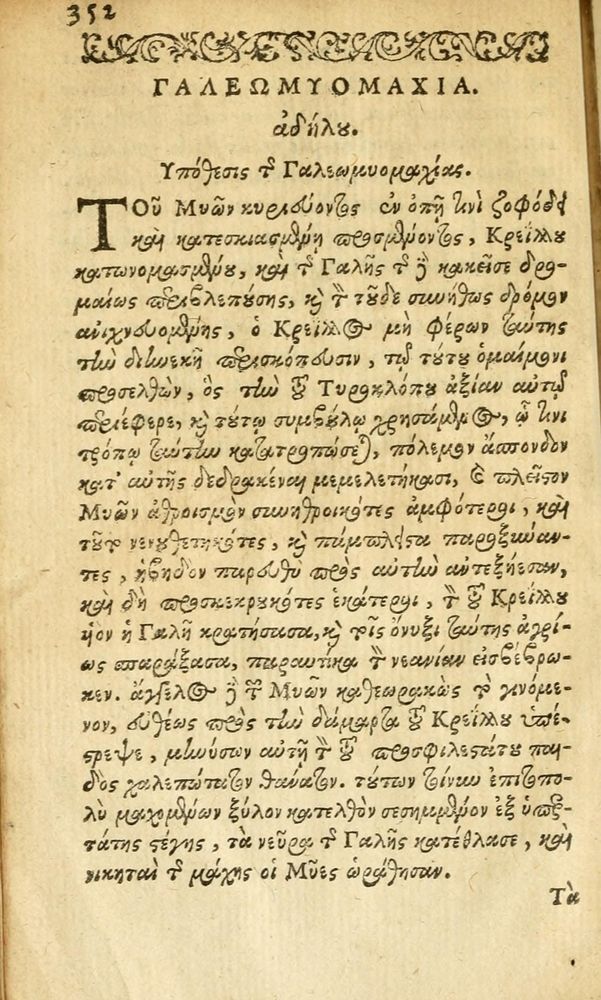 352
ΓΑΛΕΩΜΥΟΜΑΧΙΑ.
ἀδήλου.
Υπόθεσις τῆς Γαλεωμυομαχίας.
ΤΟῦ Μυῶν κυριεύοντος ἐν ὀπῇ τινὶ ζοφώδει
καὶ κατεσκιασμένῃ προσμένοντος, Κρείλλου
κατωνομασμένου, καὶ τῆς Γαλῆς τῆς δὲ κακεῖσε δρο-
μαίως περιβλεπούσης, καὶ τὸν τοῦδε συνήθως δρόμον
ανιχνευομένης, ὁ Κρεῖλλος μὴ φέρων ταύτης
τὴν διηνεκῆ περισκόπευσιν, τῷ τούτου ὁμαίμονι
προσελθὼν, ὃς τὴν τοῦ Τυροκλόπου ἀξίαν αὐτῷ
περιέφερε, καὶ τούτῳ συμβούλῳ χρησάμενος, ᾧ τινι
τρόπῳ ταύτην κατατροπώσεται, πόλεμον ἄσπονδον
κατ' αὐτῆς δεδρακέναι μεμελετήκασι, καὶ πλεῖστον
Μυῶν ἀθροισμὸν συνηθροικότες ἀμφότεροι, καὶ
τούτους νενουθετηκότες, καὶ πάμπλειστα παροξύναν-
τες, ἡβηδὸν παρευθὺ πρὸς αὐτὴν αντεξῄεσαν,
καὶ δὴ προσκεκρουκότες ἑκάτεροι, τὸν τοῦ Κρείλλου
υἱὸν ἡ Γαλῆ κρατήσασα, καὶ τοῖς ὄνυξι ταύτης ἀγρί-
ως σπαράξασα, παραυτίκα τὸν νεανίαν εἰσβέβρω-
κεν. ἄγγελος δὲ τῶν Μυῶν καθεωρακὼς τὸ γινόμε-
νον, εὐθέως πρὸς τὴν δάμαρτα τοῦ Κρείλλου ὑπέ-
στρεψε, μηνύσων αὐτῇ τὸν τοῦ προσφιλεστάτου παι-
δὸς χαλεπώτατον θάνατον. τούτων τοίνυν ἐπιτοπο-
λὺ μαχομένων ξύλον κατελθὸν σεσημμένον ἐξ ὑπερ-
τάτης στέγης, τὰ νεῦρα τῆς Γαλῆς κατέθλασε, καὶ
νικηταὶ τῆς μάχης οἱ Μῦες ὡράθησαν.
Τὰ